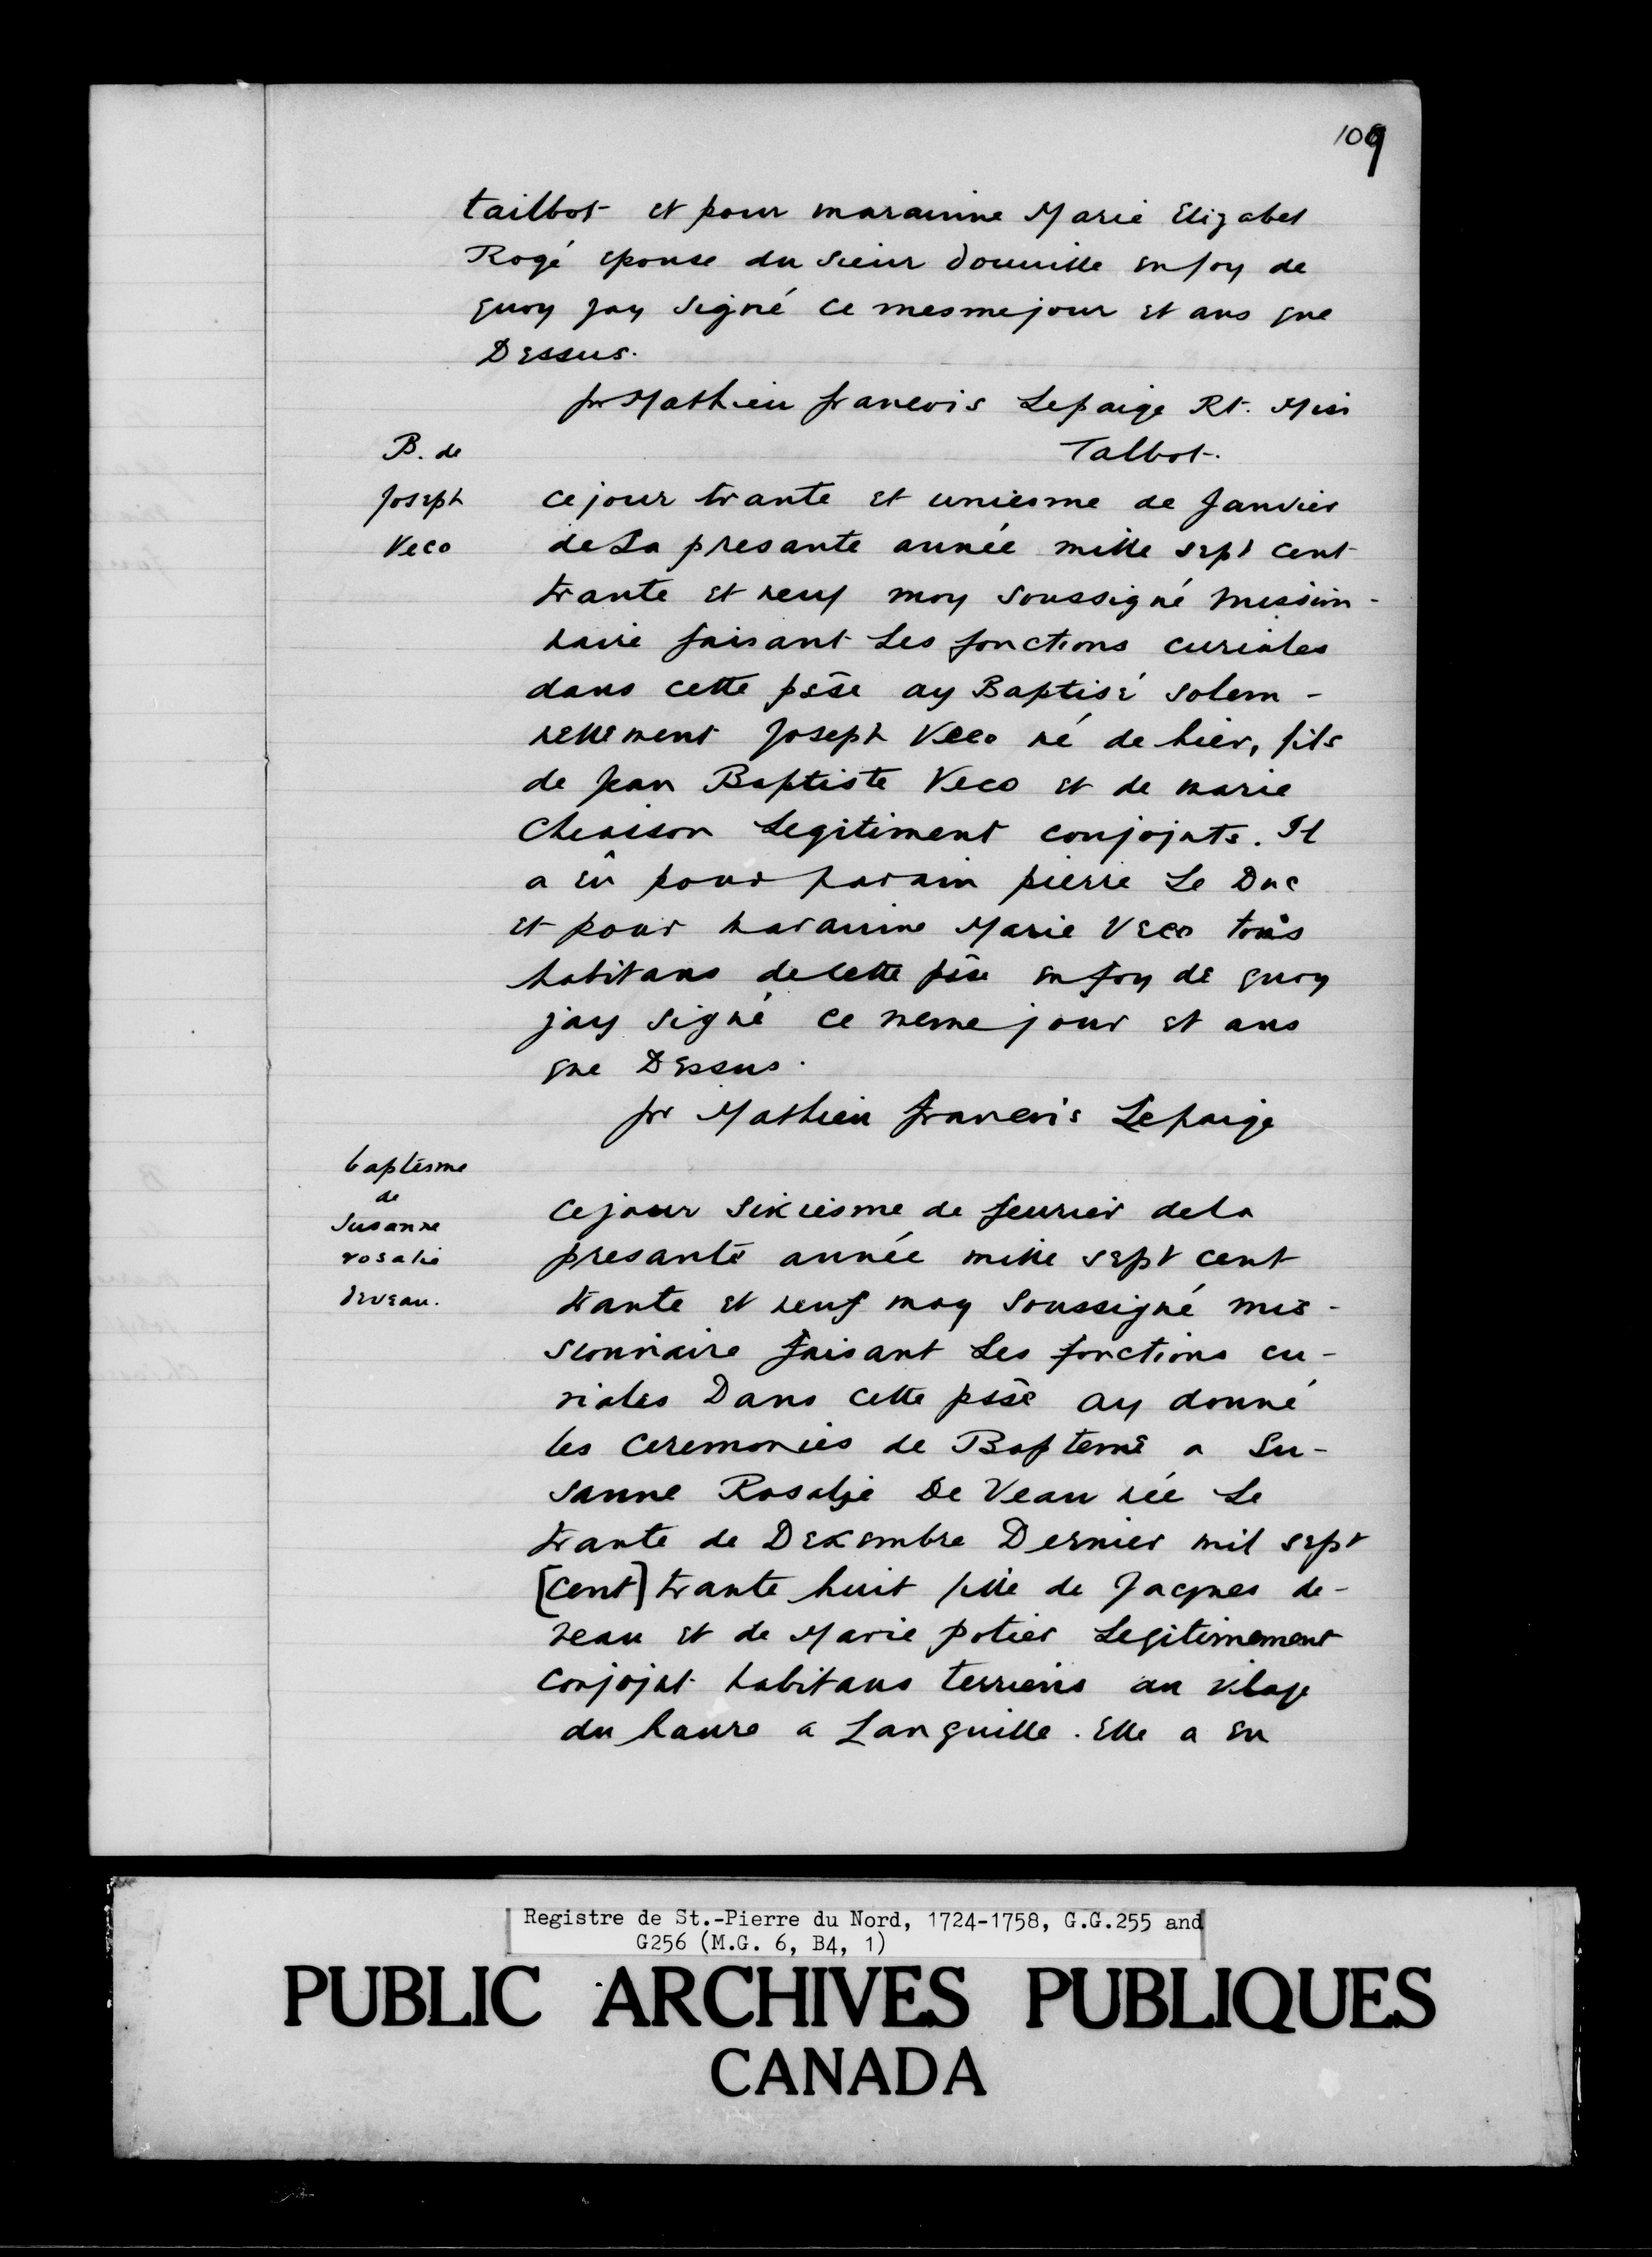 109
tailbot et pour marainne Marie Elizabet
Rogé epouse du sieur douuille en foy de
quoy jay signé ce mesme jour et ans que
Dessus.
fr Mathieu francois Lepaige Rt. Miss
Talbot.
B. de
Joseph
Veco
ce jour trante et uniesme de Janvier
de La presante année mille sept cent
trante et neuf moy soussigné mission-
naire faisant Les fonctions curiales
dans cette psse ay Baptisé solem-
nellement Joseph Veco né de hier, fils
de Jean Baptiste Veco et de marie
Cheaisson Legitiment conjojnts. Il
a eû pour parain pierre Le Duc
et pour marainne Marie Veco tous
habitans de cette psse en foy de quoy
jay signé ce meme jour et ans
que Dessus.
fr Mathieu francois Lepaige
baptesme
de
Susanne
rosalie
deveau.
ce jour sixiesme de feurier de la
presante année mille sept cent
trante et neuf moy soussigné mis-
sionnaire faisant Les fonctions cu-
riales Dans cette psse ay donné
les ceremonies de Bapteme a Su-
sanne Rosalje De Veau née Le
trante de Dexembre Dernier mil sept
[cent] trante huit fille de Jacques de-
veau et de Marie potier Legitimement
conjojnt habitans terriens au vilage
du haure a Languille. Elle a eu
Registre de St.-Pierre du Nord, 1724-1758, G.G.255 and
G256 (M.G. 6, B4, 1)
PUBLIC ARCHIVES PUBLIQUES
CANADA